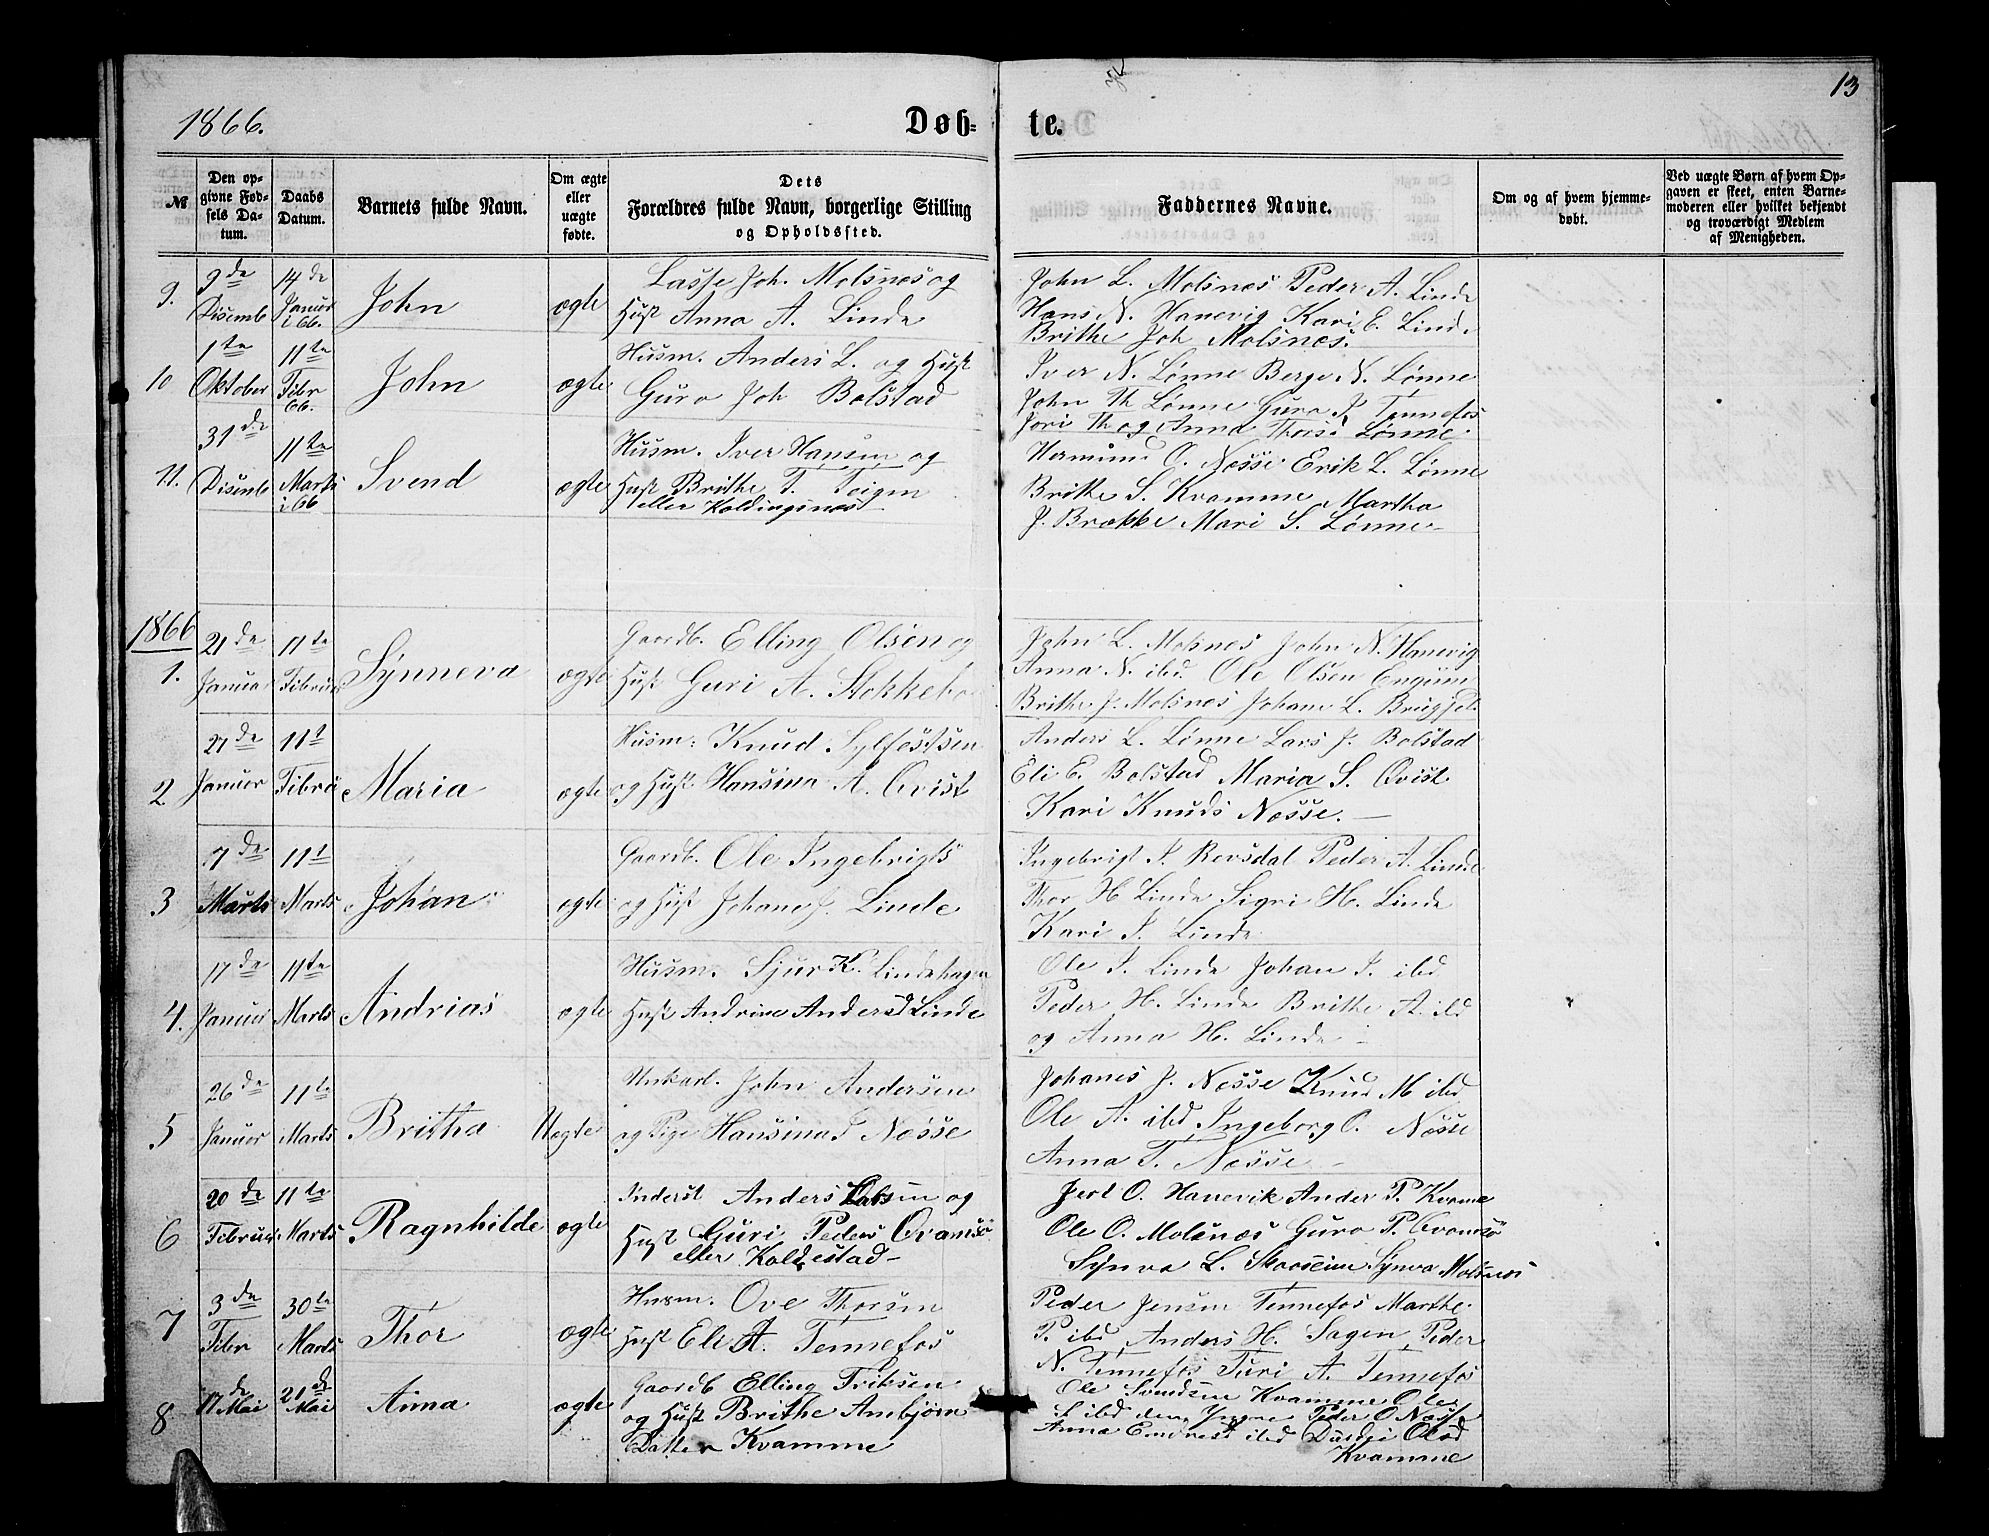 13
1866.
Døb-
te.
№
Den op-
givne Fød-
sels Da-
tum.
Daabs
Datum.
Barnets fulde Navn.
Om ægte
eller
uægte
fødte.
Dets
Forældres fulde Navn, borgerlige Stilling
og Opholdssted.
Faddernes Navne.
Om og af hvem hjemme-
døbt.
Ved uægte Børn af hvem Op-
gaven er skeet, enten Barne-
moderen eller hvilket bekjendt
og troværdigt Medlem
af Menigheden.
9.
9de
Disemb
14de
Januar
i 66.
John
ægte
Lasse Joh. Molsnæs og
Hust Anna A. Linde
John L. Molsnæs Peder A. Linde
Hans N. Hanevig Kari E. Linde
Brithe Joh Molsnæs.
10
1te
Oktober
11te
Febr
66.
John
ægte
Husm. Anders L. og Hust
Guro Joh Bolstad
Iver N. Lønne Berge N. Lønne
John Th Lønne Guro P. Tennefos
Jori Th og Anna Thors. Lønne.
11.
31de
Disemb
11te
Marts
i 66
Svend
ægte
Husm. Iver Hansen og
Hust Brithe T. Teigen
eller Koldingsnæs
Hermund O. Næsse Erik L. Lønne
Brithe S. Kvamme Martha
J. Brække Mari S. Lønne
1866
1.
21de
Januar
11te
Februar
Synneva
ægte
Gaardb. Elling Olsen og
Hust Guri A. Stokkebø
John L. Molsnæs John N. Hanevig
Anna N. ibd Ole Olsen Engum
Brithe J. Molsnæs Johane L.
2
27de
Januar
11t
Febru
Maria
ægte
Husm: Knud Sylfestsen
og Hust Hansina A. Qvist
Anders L. Lønne Lars J. Bolstad
Eli E. Bolstad Maria S. Qvist
Kari Knuds Næsse.
3
7de
Marts
11t
Marts
Johan
ægte
Gaardb. Ole Ingebrigts
og Hust Johane J. Linde
Ingebrigt I. Revsdal Peder A. Linde
Thor H Linde Sigri H. Linde
Kari I. Linde
4.
17de
Januar
11te
Marts
Andrias
ægte
Husm. Sjur K. Lindehagen
Hust Andrine Andersd Linde
Ole I. Linde Johan I. ibd
Peder H. Linde Brithe A. ibd
og Anna H. Linde
5
26de
Januar
11te
Marts
Britha
Uægte
Unkarl. John Andersen
og Pige Hansina J Næsse
Johanes J. Næsse Knud M ibd
Ole A. ibd Ingeborg O. Næsse
Anna T. Næsse
6
20de
Februar
11te
Marts
Ragnhilde
ægte
Inderst Anders Larsen og
Hust Guri Peders Qvamsø
eller Koldestad
O. Hanevik Ander P. Kvame
Ole O. Molsnæs Guro P. Qvamsø
Synva L. Skaaseim Synva Molsnæs
7
3de
Febr
30te
Marts
Thor
ægte
Husm. Ove Thorsen
Hust Eli A. Tennefos
Peder Jensen Tennefos Marthe
P. ibd Anders H. Sagen Peder
N. Tennefos Turi A. Tennefos
8
17de
Mai
21de
Mai
Anna
ægte
Gaardb Elling Eriksen
og Hust Brithe Ambjørn
Datter Kvamme
Ole Svendsen Kvamme Ole
S ibd den Yngre Peder O Næsse
Anna ibd Olsd
Kvamme